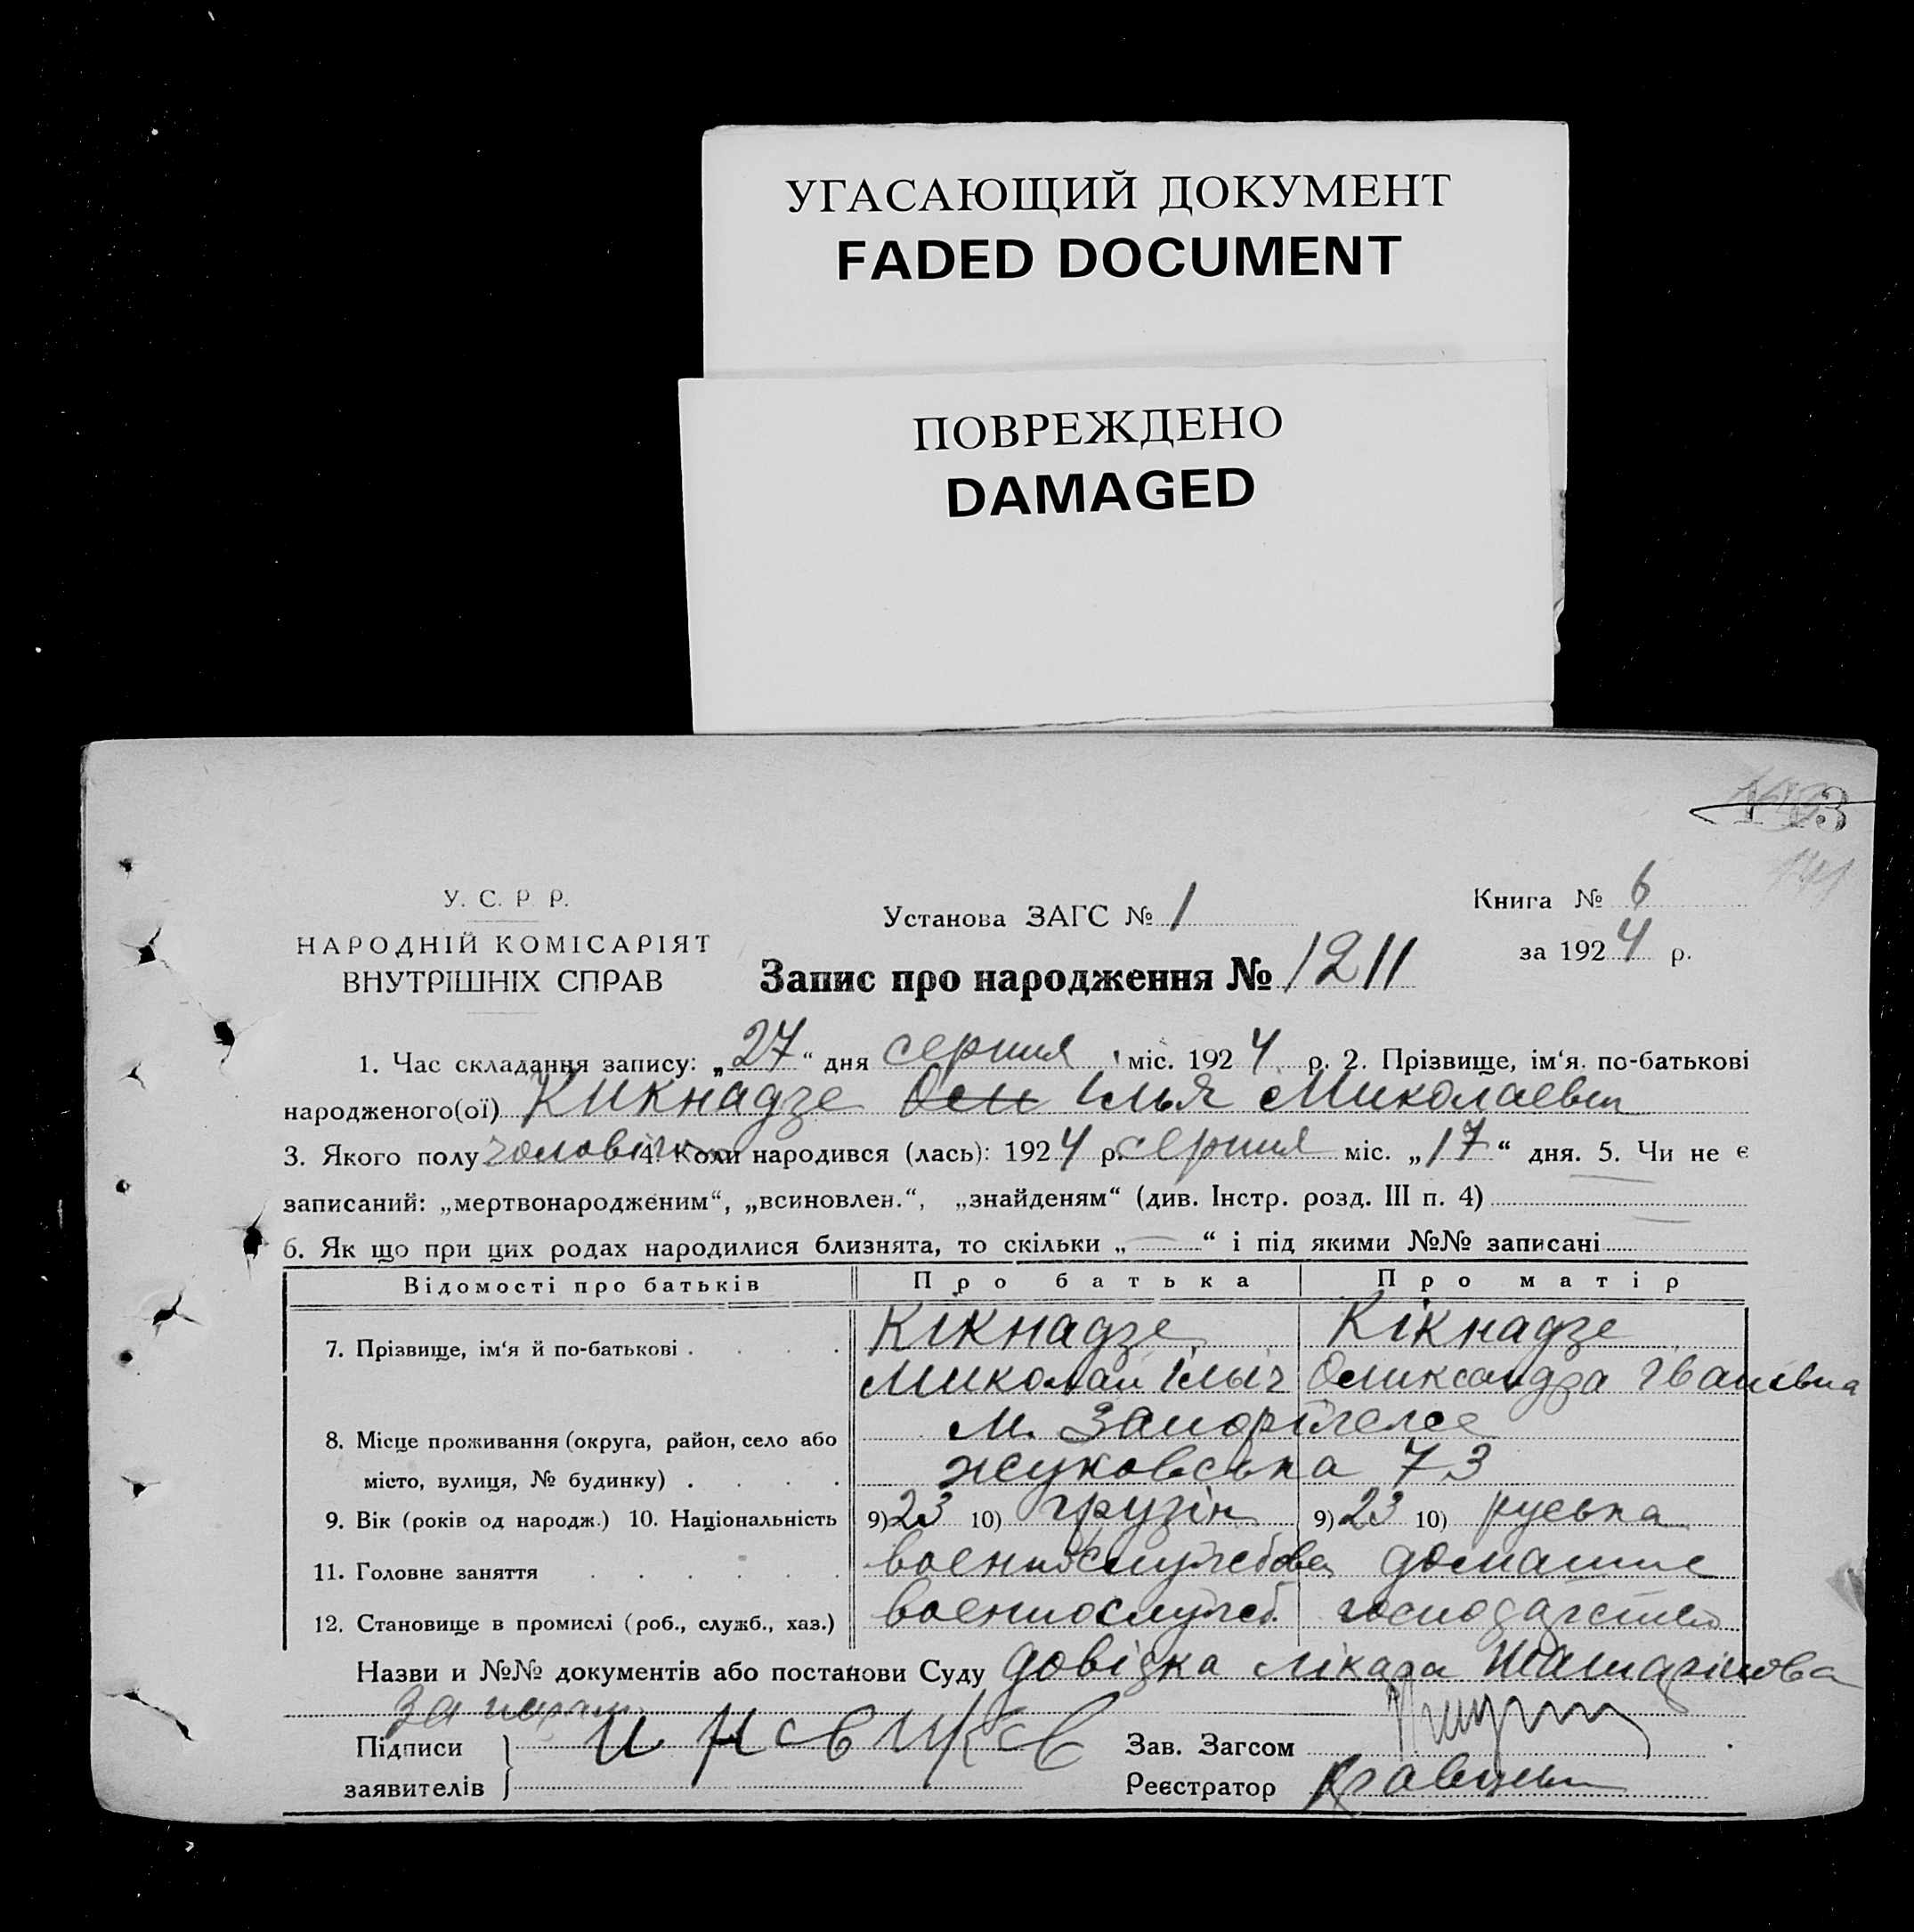 УГАСАЮЩИЙ ДОКУМЕНТ
FADED DOCUMENT
ПОВРЕЖДЕНО
DAMAGED
113
141
У. С. Р. Р.
НАРОДНІЙ КОМІСАРІЯТ
ВНУТРІШНІХ СПРАВ
Установа ЗАГС № 1
Книга № 6
за 1924 р.
Запис про народження № 1211
1. Час складання запису: „27“ дня серпня міс. 1924 р. 2. Прізвище, ім‘я. по-батькові
народженого(ої) Кикнадзе Ілья Миколаевич
3. Якого полу чоловіч 4. Коли народився (лась): 1924 р. серпня міс. „17“ дня. 5. Чи не є
записаний: „мертвонародженим“, „всиновлен.“, „знайденям“ (див. Інстр. розд. III п. 4)
6. Як що при цих родах народилися близнята, то скільки „—“ і під якими №№ записані
Відомості про батьків Про батька Про матір
7. Прізвище, ім‘я й по-батькові Кікнадзе Кікнадзе
Миколай Ілыч Олександра Іванівна
8. Місце проживання (округа, район, село або м. Запоріжже
місто, вулиця, № будинку) Жуковська 73
9. Вік (років од народж.) 10. Національність 9) 23 10) грузін 9) 23 10) руська
11. Головне заняття военнослужбовец домашне
12. Становище в промислі (роб., служб., хаз.) военнослужб. господарство
Назви и №№ документів або постанови Суду довідка лікара
Підписи
заявителів
Зав. Загсом
Реєстратор